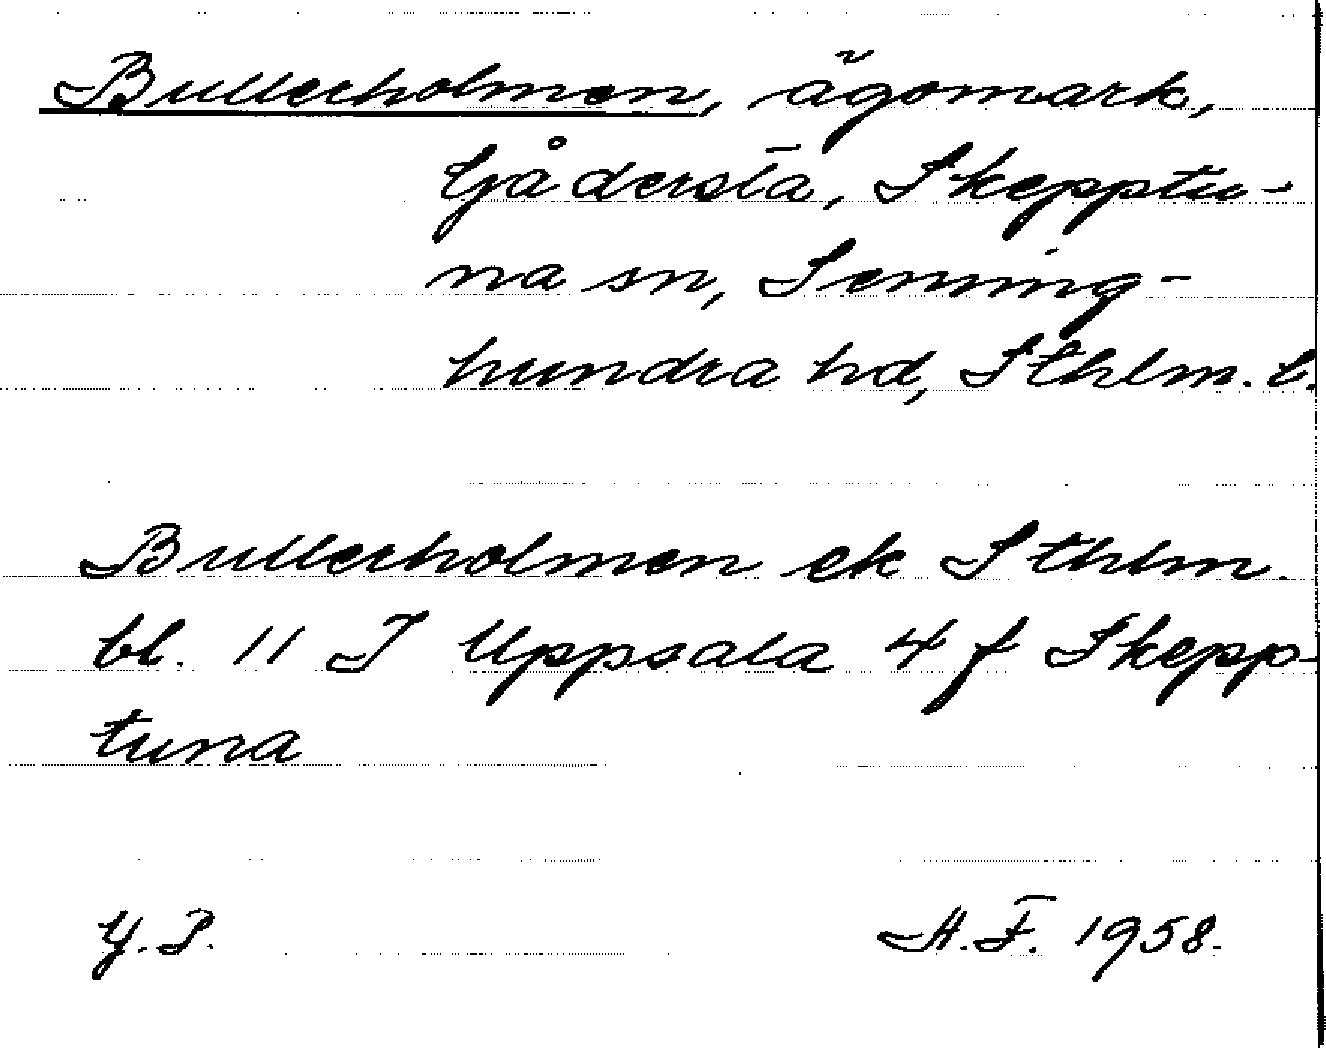 Bullerholmen, ägomark,
Gådersta, Skepptu-
na sn, Seming-
hundra hd, Sthlm. l.
Bullerholmen ek Sthlm.
bl. 11 I Uppsala 4 f Skepp-
tuna
G. P. A.F. 1958.